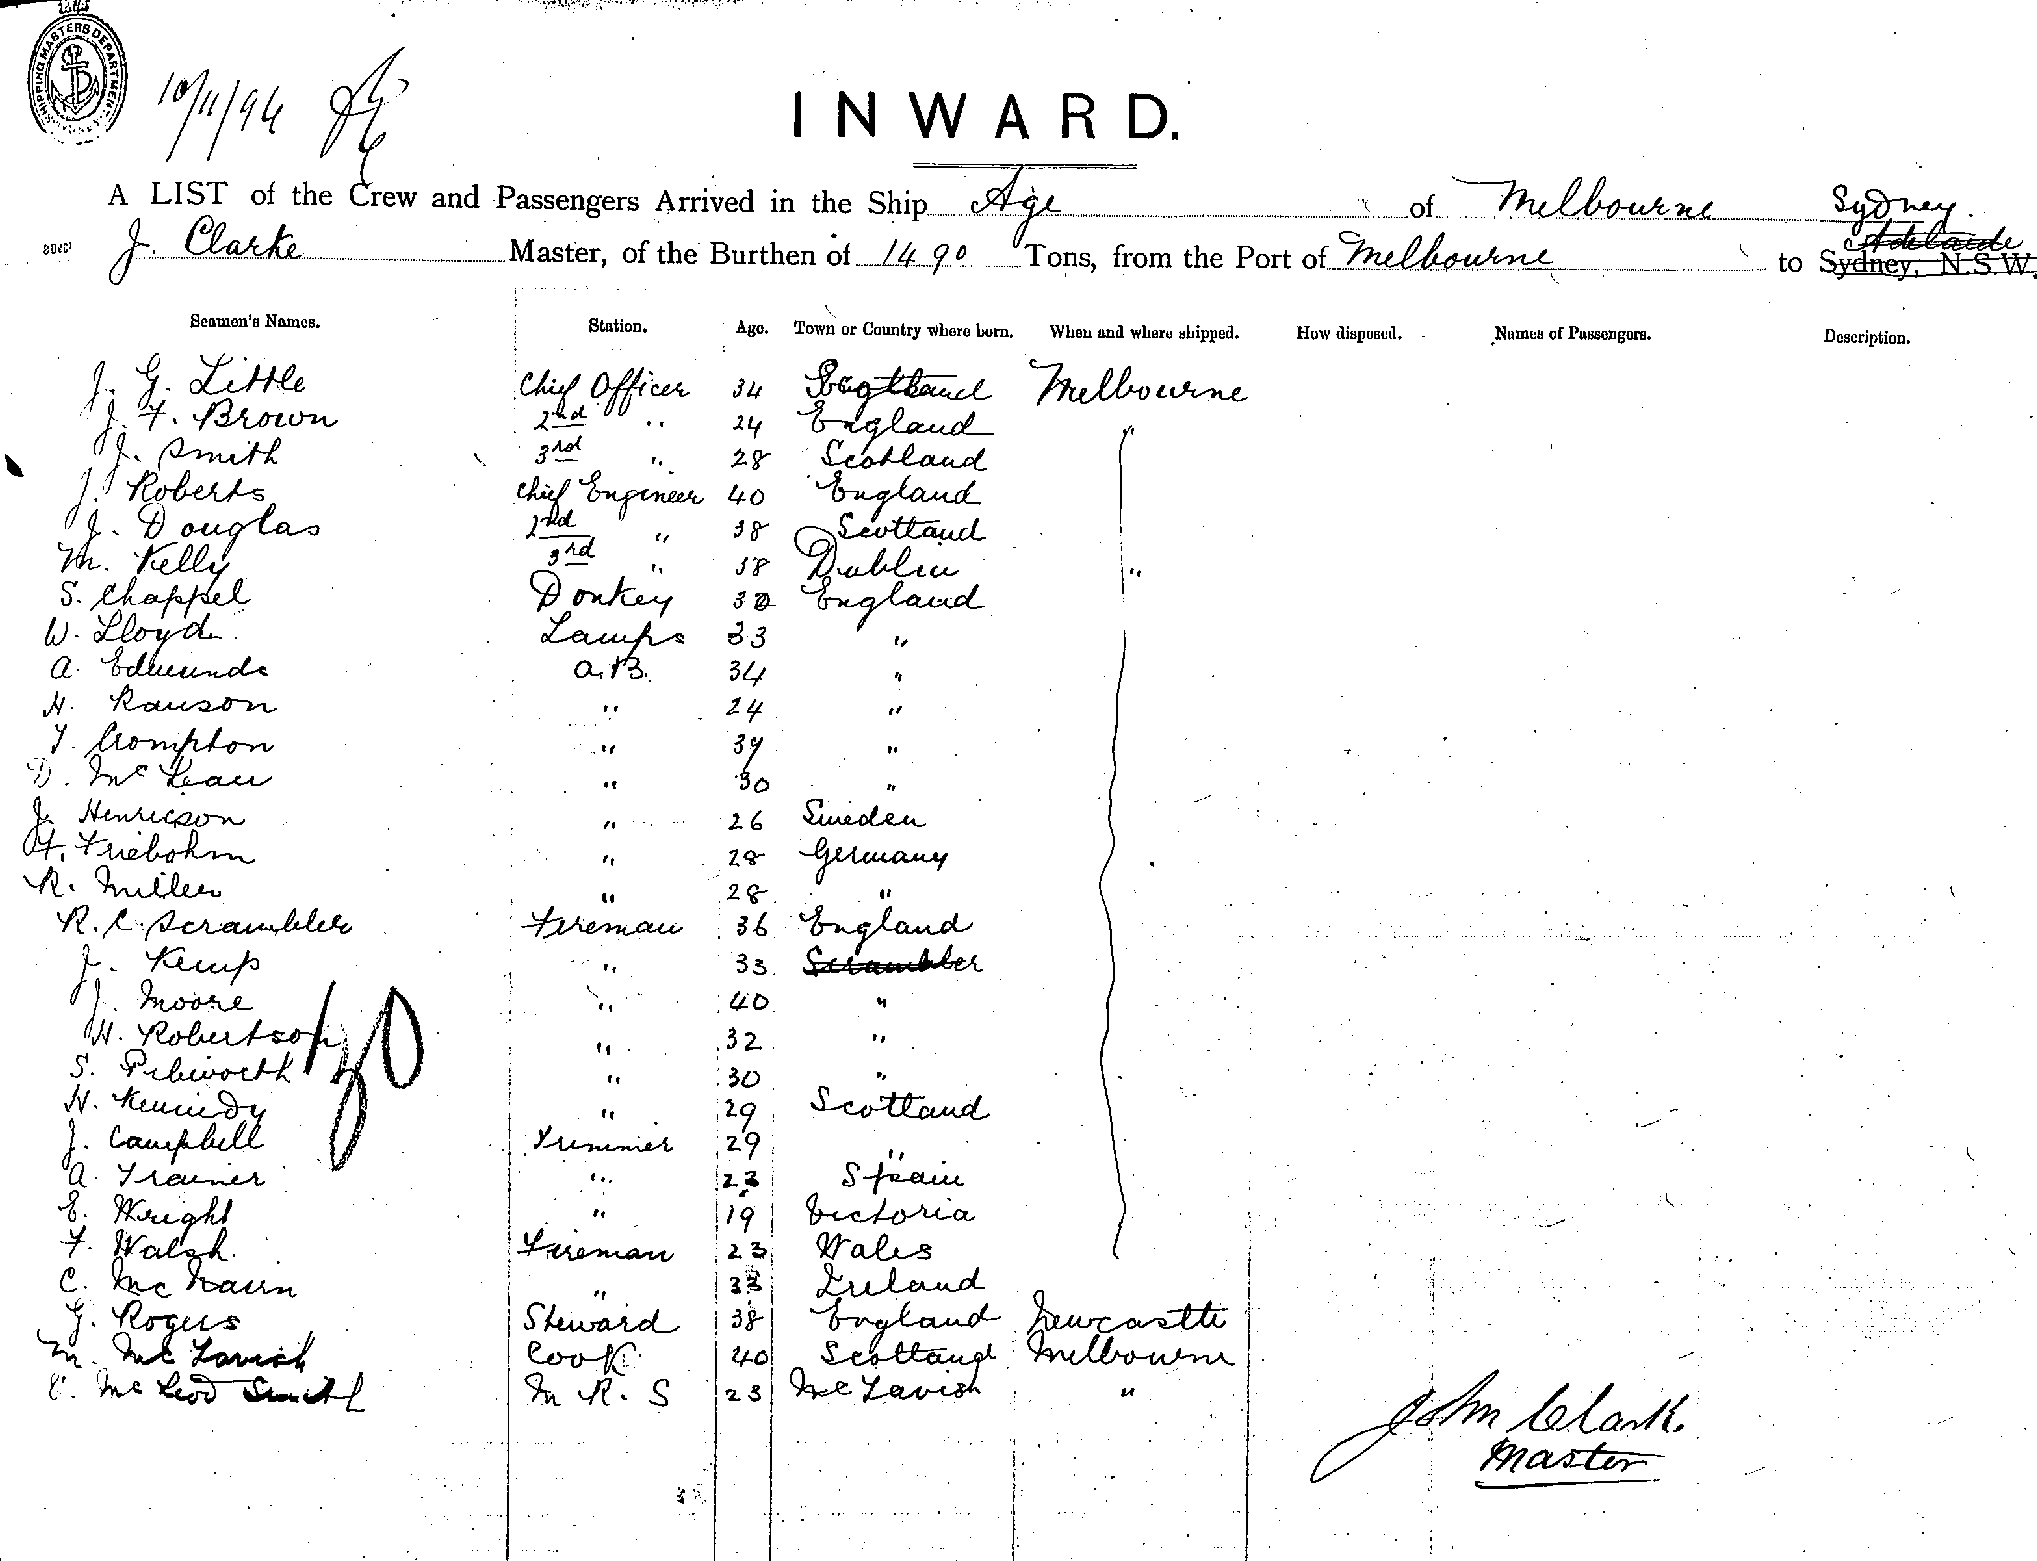 SHIPPING MASTERS DEPARTMENT
10/11/96
INWARD.
A LIST of the Crew and Passengers Arrived in the Ship Age of Melbourne Sydney.
Adelaide
J. Clarke Master, of the Burthen of 1490 Tons, from the Port of Melbourne to Sydney, N.S.W.
Seamen's Names. Station. Age. Town or Country where born. When and where shipped. How disposed. Names of Passengers. Description.
J. G. Little Chief Officer 34 Scotland Melbourne
J. F. Brown 2nd " 24 England "
J. Smith 3rd " 28 Scotland
J. Roberts Chief Engineer 40 England
J. Douglas 2nd " 38 Scotland
M. Kelly 3rd " 38 Dublin "
S. Chappel Donkey 30 England
W. Lloyd Lamps 33 "
A. Edmunds A.B. 34 "
H. Ranson " 24 "
T. Crompton " 39 "
D. McLean " 30 "
J. Henricson " 26 Sweden
H. Friebohm " 28 Germany
R. Miller " 28 "
R. C. Scrambler Fireman 36 England
J. Kemp " 33 Scrambler
J. Moore " 40 "
H. Robertson " 32 "
S. Pibworth " 30 "
H. Kennedy " 29 Scotland
J. Campbell Trimmer 29 "
A. Trainer " 23 Spain
E. Wright " 19 Victoria
F. Walsh. Fireman 23 Wales
C. McNairn " 33 Ireland
G. Rogers Steward 38 England Newcastle
M. McTavish Cook 40 Scotland Melbourne
C. McLeod Smith M R. S 23 McTavish "
John Clark.
Master